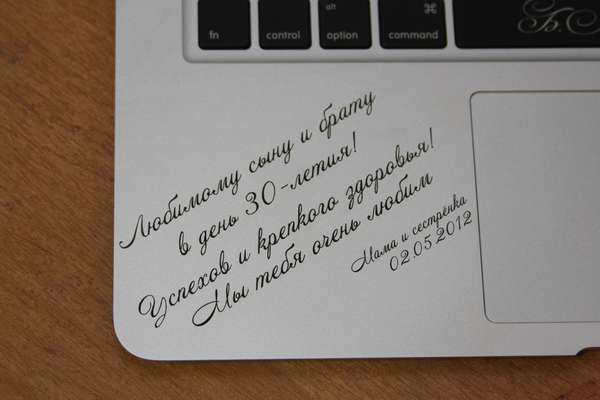 fn
control
alt
option
⌘
command
Б.С
Любимому сыну и брату
в день 30-летия!
Успехов и крепкого здоровья!
Мы тебя очень любим
Мама и сестрёнка
02.05.2012